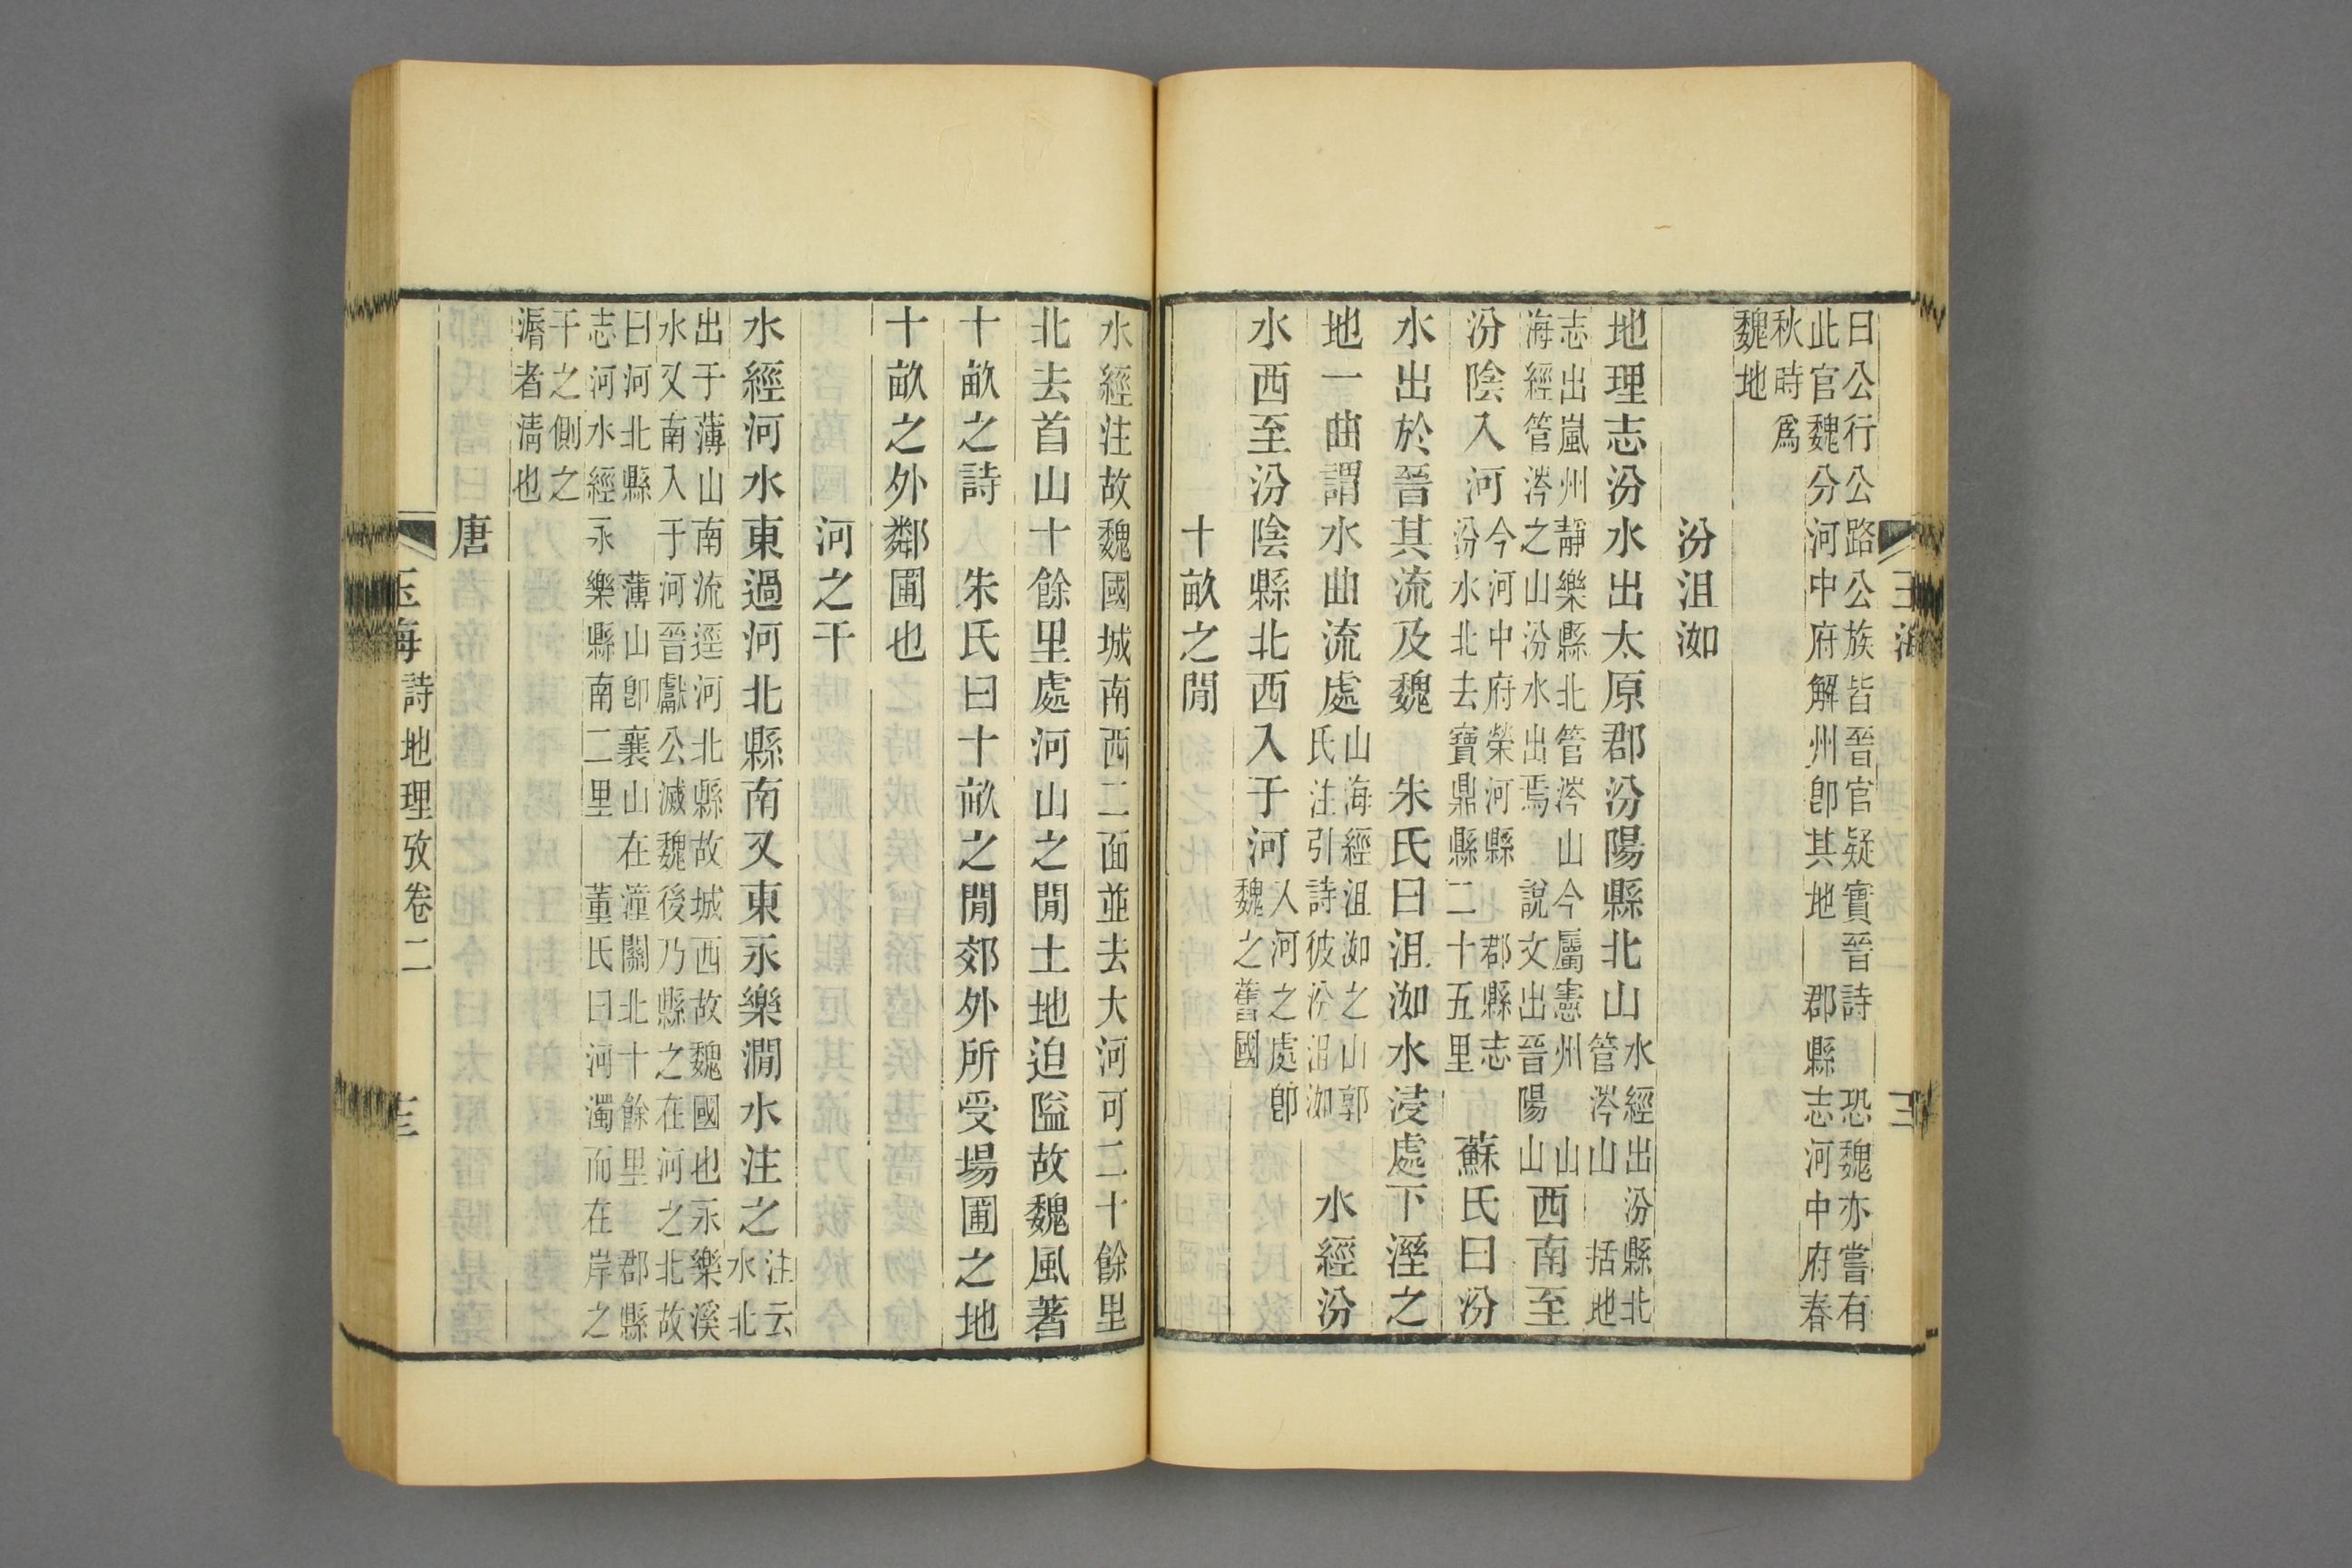 玉海
三
曰公行公路公族皆晉官疑實晉詩 恐魏亦嘗有
此官魏分河中府解州卽其地 郡縣志河中府春
秋時爲
魏地
汾沮洳
地理志汾水出太原郡汾陽縣北山水經出汾縣北管涔山 括地
志出嵐州靜樂縣北管涔山今屬憲州 山海經管涔之山汾水出焉 說文出晉陽山西南至
汾陰入河今河中府榮河縣 郡縣志汾水北去寶鼎縣二十五里 蘇氏曰汾
水出於晉其流及魏 朱氏曰沮洳水浸處下溼之
地一曲謂水曲流處山海經沮洳之山郭氏注引詩彼汾沮洳 水經汾
水西至汾陰縣北西入于河入河之處卽魏之舊國
十畝之閒
水經注故魏國城南西二面並去大河可二十餘里
北去首山十餘里處河山之閒土地迫隘故魏風著
十畝之詩 朱氏曰十畝之閒郊外所受場圃之地
十畝之外鄰圃也
河之干
水經河水東過河北縣南又東永樂澗水注之注云水北
出于薄山南流逕河北縣故城西故魏國也永樂溪
水又南入于河晉獻公滅魏後乃縣之在河之北故
曰河北縣 薄山卽襄山在潼關北十餘里 郡縣
志河水經永樂縣南二里 董氏曰河濁而在岸之
干之側之
漘者淸也
唐
玉海 詩地理攷卷二